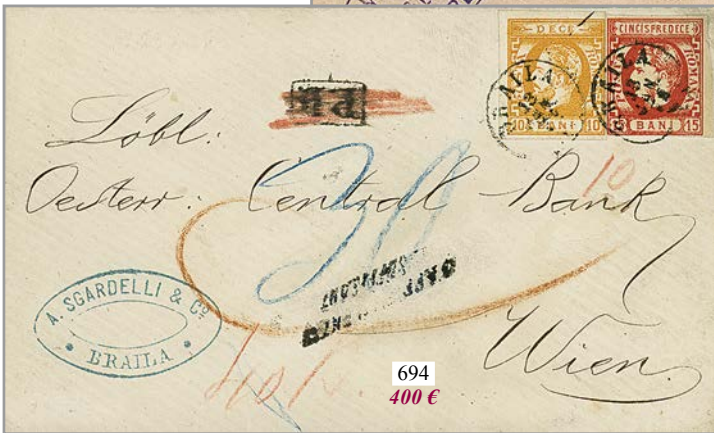 DECI
ROMANA
10 BANI 10
CINCISPREDECE
ROMANA
15 BANI 15
BRAILA
BRAILA
P.D.
Löbl:
Oesterr: Central Bank
10
20
Wien
A. SGARDELLI & Co
• BRAILA •
694
400 €